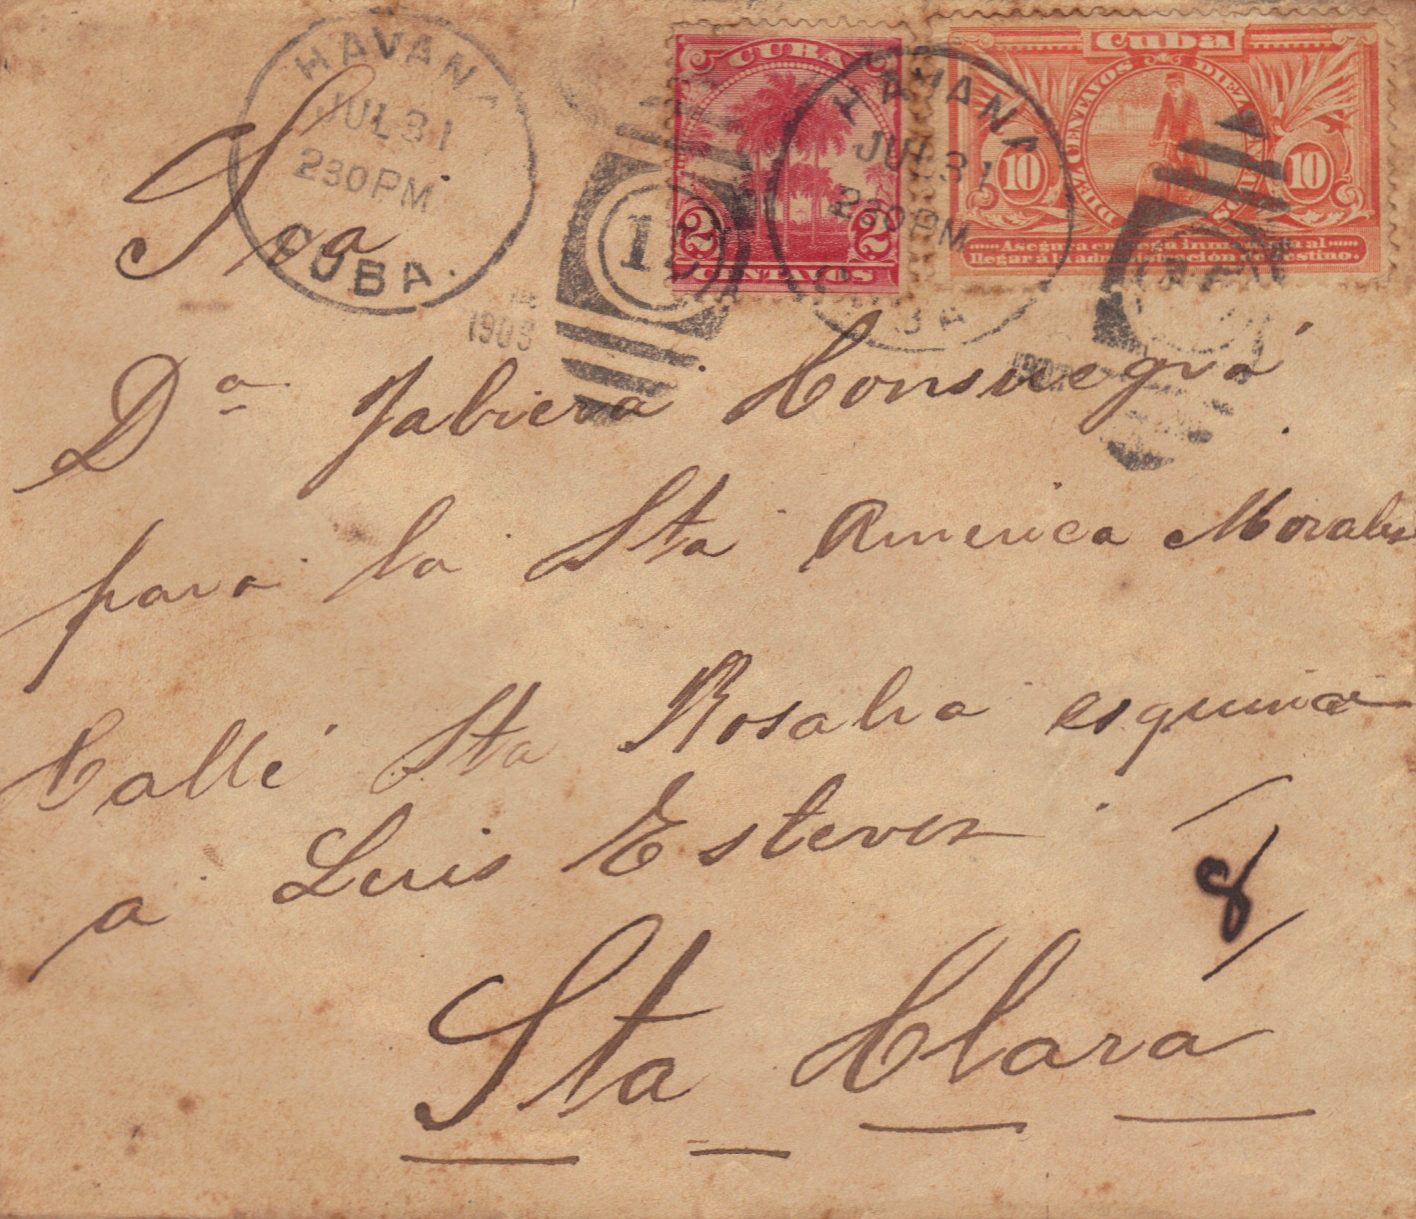 HAVANA
JUL 31
2 30 PM
CUBA
1909
CUBA
2 2
CENTAVOS
HAVANA
JUL 31
2 30 PM
CUBA
Cuba
DIEZ CENTAVOS DIEZ CENTAVOS
10 10
Asegura entrega inmediata al
llegar á la administración de destino.
Sra
Dª Jabiera Consuegrá
para la Sta America Morales
Callé Sta Rosalia esquina
a Luis Estevez
8
Sta Clara